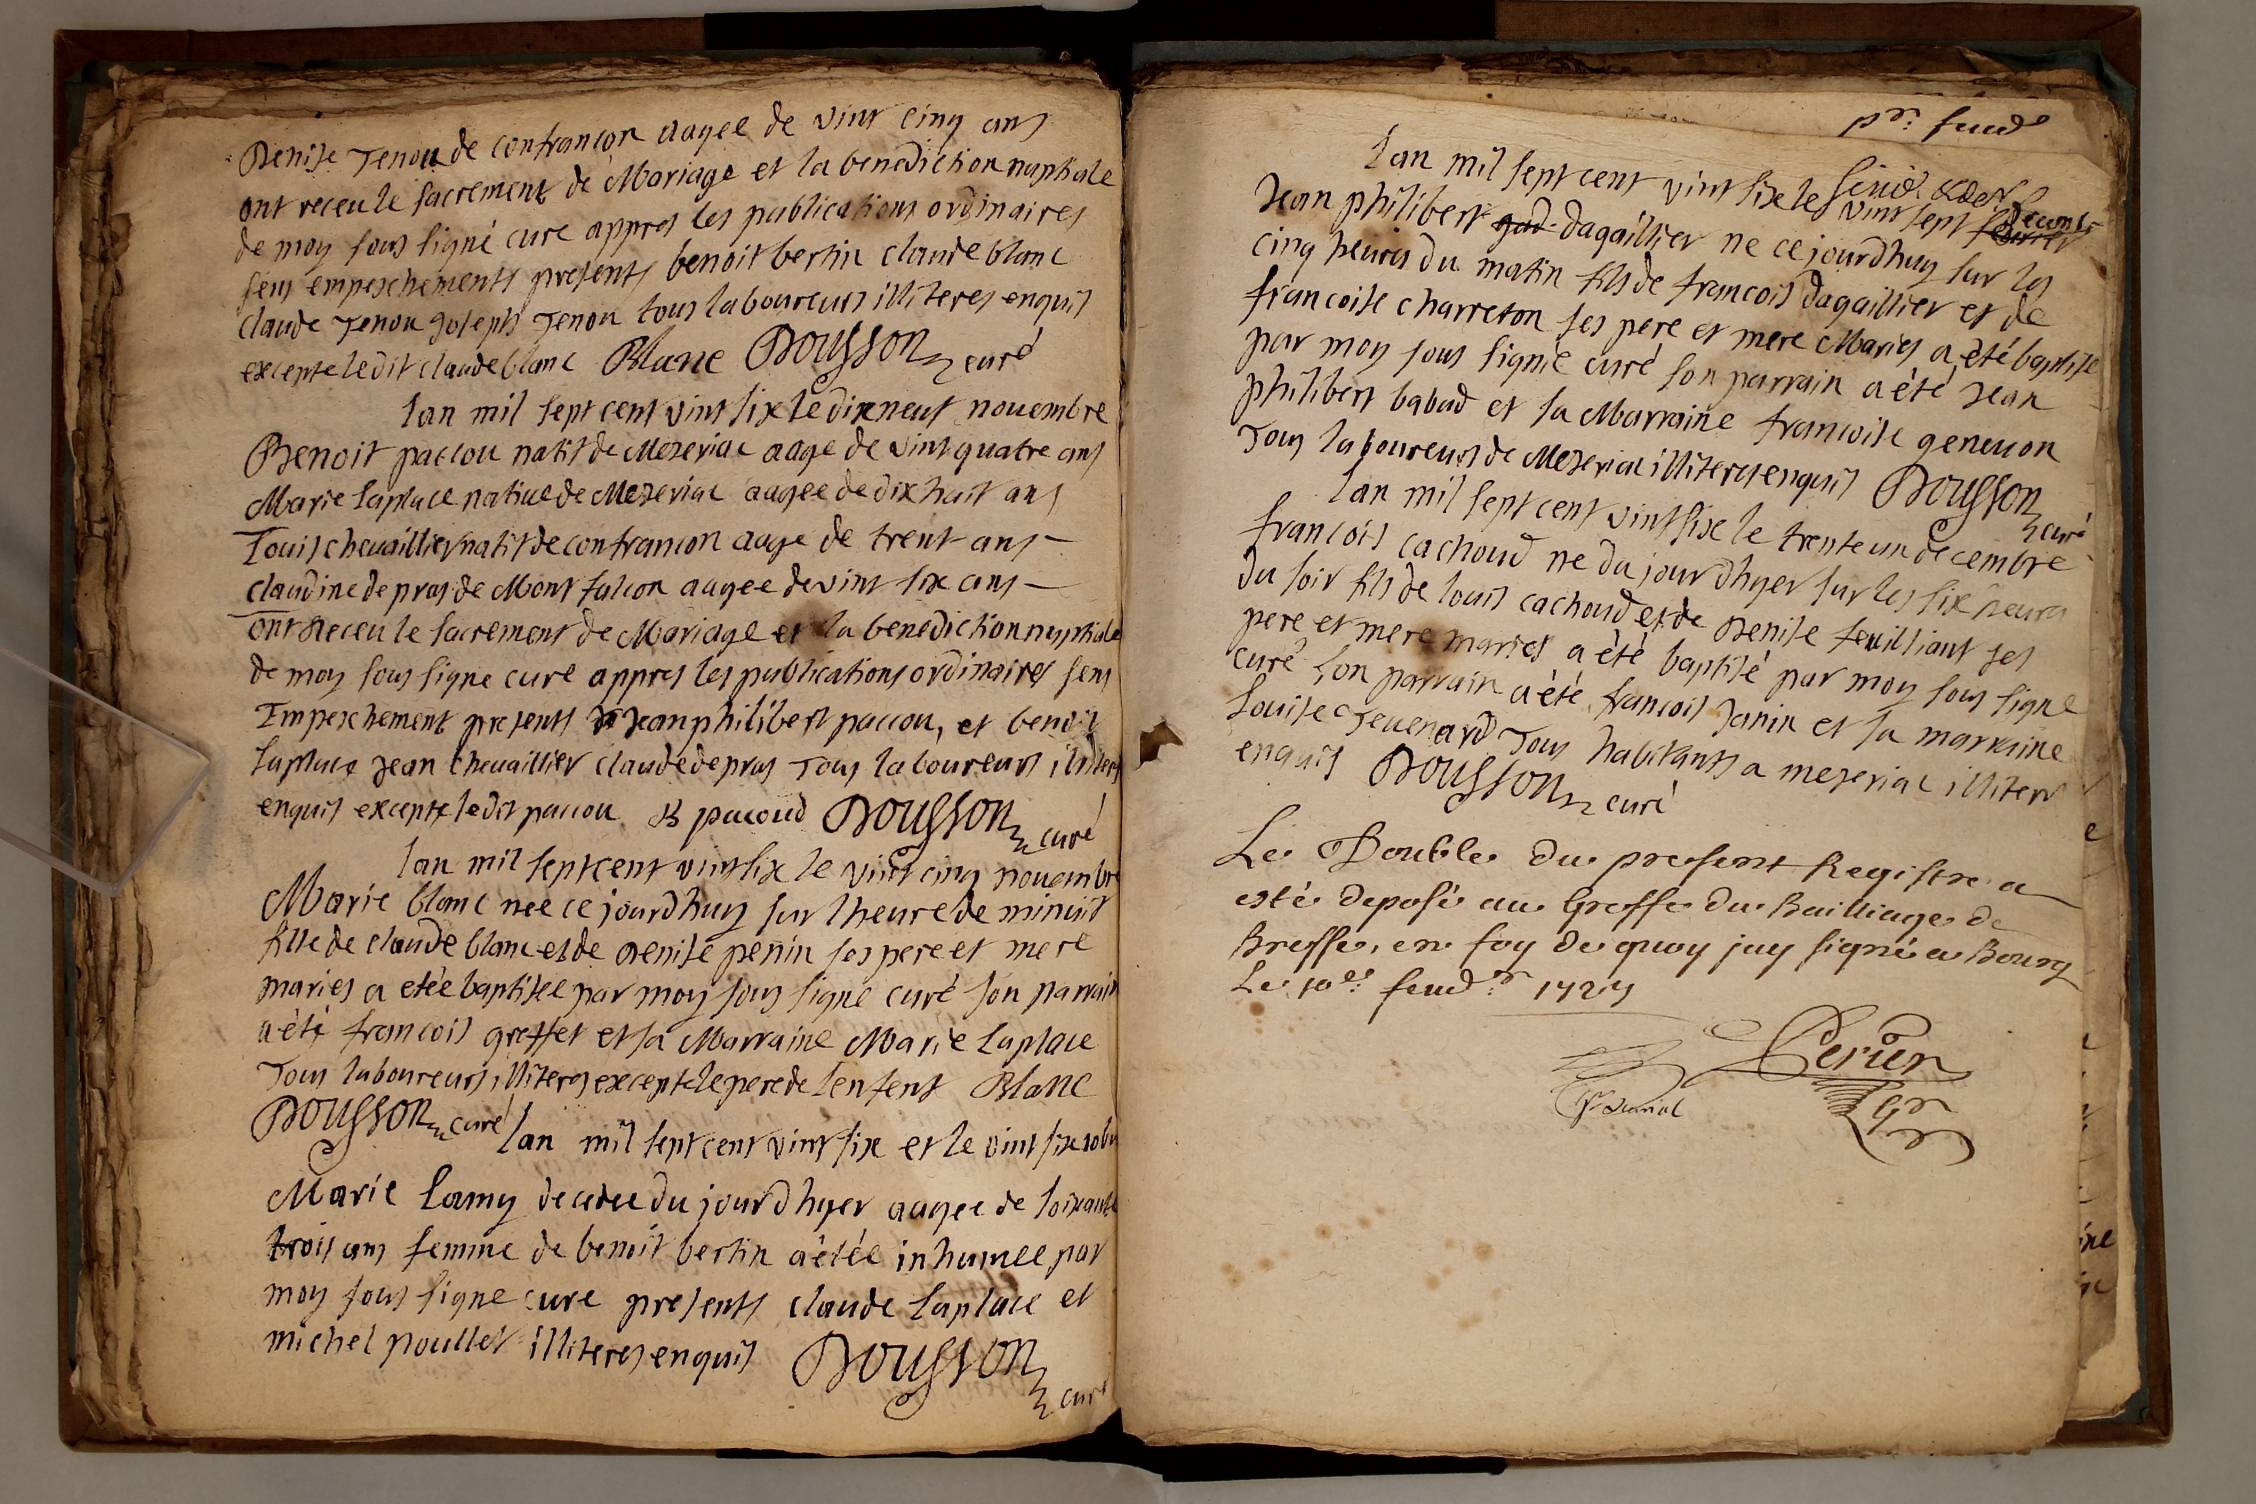 Denise Tenou de confrancon aagee de vint cinq ans
ont receu le sacrement de Mariage et la benediction nuptiale
de moy sous signé cure appres les publications ordinaires
sens empeschements presents benoit bertin claude blanc
claude Tenou Joseph Tenou tous laboureurs illiteres enquis
excepte ledit claude blanc Blanc Dousson curé
lan mil sept cent vint six le dixneuf nouembre
Benoit paccou natif de Mezeriac aage de vint quatre ans
Marie laplace natiue de Mezeriac aagee de dix huit ans
Louis cheuaillier natif de confrancon aage de trent ans
claudine de pras de Mont falcon aagee de vint six ans
ont Receu le sacrement de Mariage et la benediction nuptiale
de moy sous signe cure appres les publications ordinaires sens
Impeschement presents Jean philibert paccou, et benoit
laplace Jean cheuaillier claude de pras Tous laboureurs illiteres
enquis excepte ledit paccou B pacoud Dousson curé
lan mil sept cent vint six le vint cinq nouembre
Marie blanc nee ce jourdhuy sur lheure de minuit
fille de claude blanc et de Denise penin ses pere et mere
maries a etée baptisee par moy sous signé curé son parrain
a été francois greffet et sa Marraine Marie Laplace
Tous laboureurs illiteres excepte le pere de lenfent Blanc
Dousson curé lan mil sept cent vint six et le vint six
Marie Lamy decedee du jourdhyer aagee de soixante
trois ans femme de benoit bertin a étée inhumee par
moy sous signe cure presents claude Laplace et
michel poullet illiteres enquis Dousson
curé
lan mil sept cent vint six le vint sept decembre
Jean philibert dagaillier ne ce jourdhuy sur les
cinq heures du matin fils de francois dagaillier et de
francoise charreton ses pere et mere Maries a été baptise
par moy sous signé curé son parrain a été Jean
philibert babad et sa Marraine francoise geneuon
Tous laboureurs de Mezeriac illiteres enquis Dousson
curé
lan mil sept cent vint six le trente un decembre
francois cachoud ne du jourdhyer sur les six heures
du soir fils de louis cachoud et de Denise feuilliant ses
pere et mere maries a été baptisé par moy sous signe
curé son parrain a été francois Janin et sa marraine
Louise Teuenard Tous habitants a mezeriac illiteres
enquis Dousson curé
Le Double du present Registre a
esté deposé au Greffe du Bailliage de
Bresse, en foy de quoy jay signé a Bourg
Le 1727
Perier